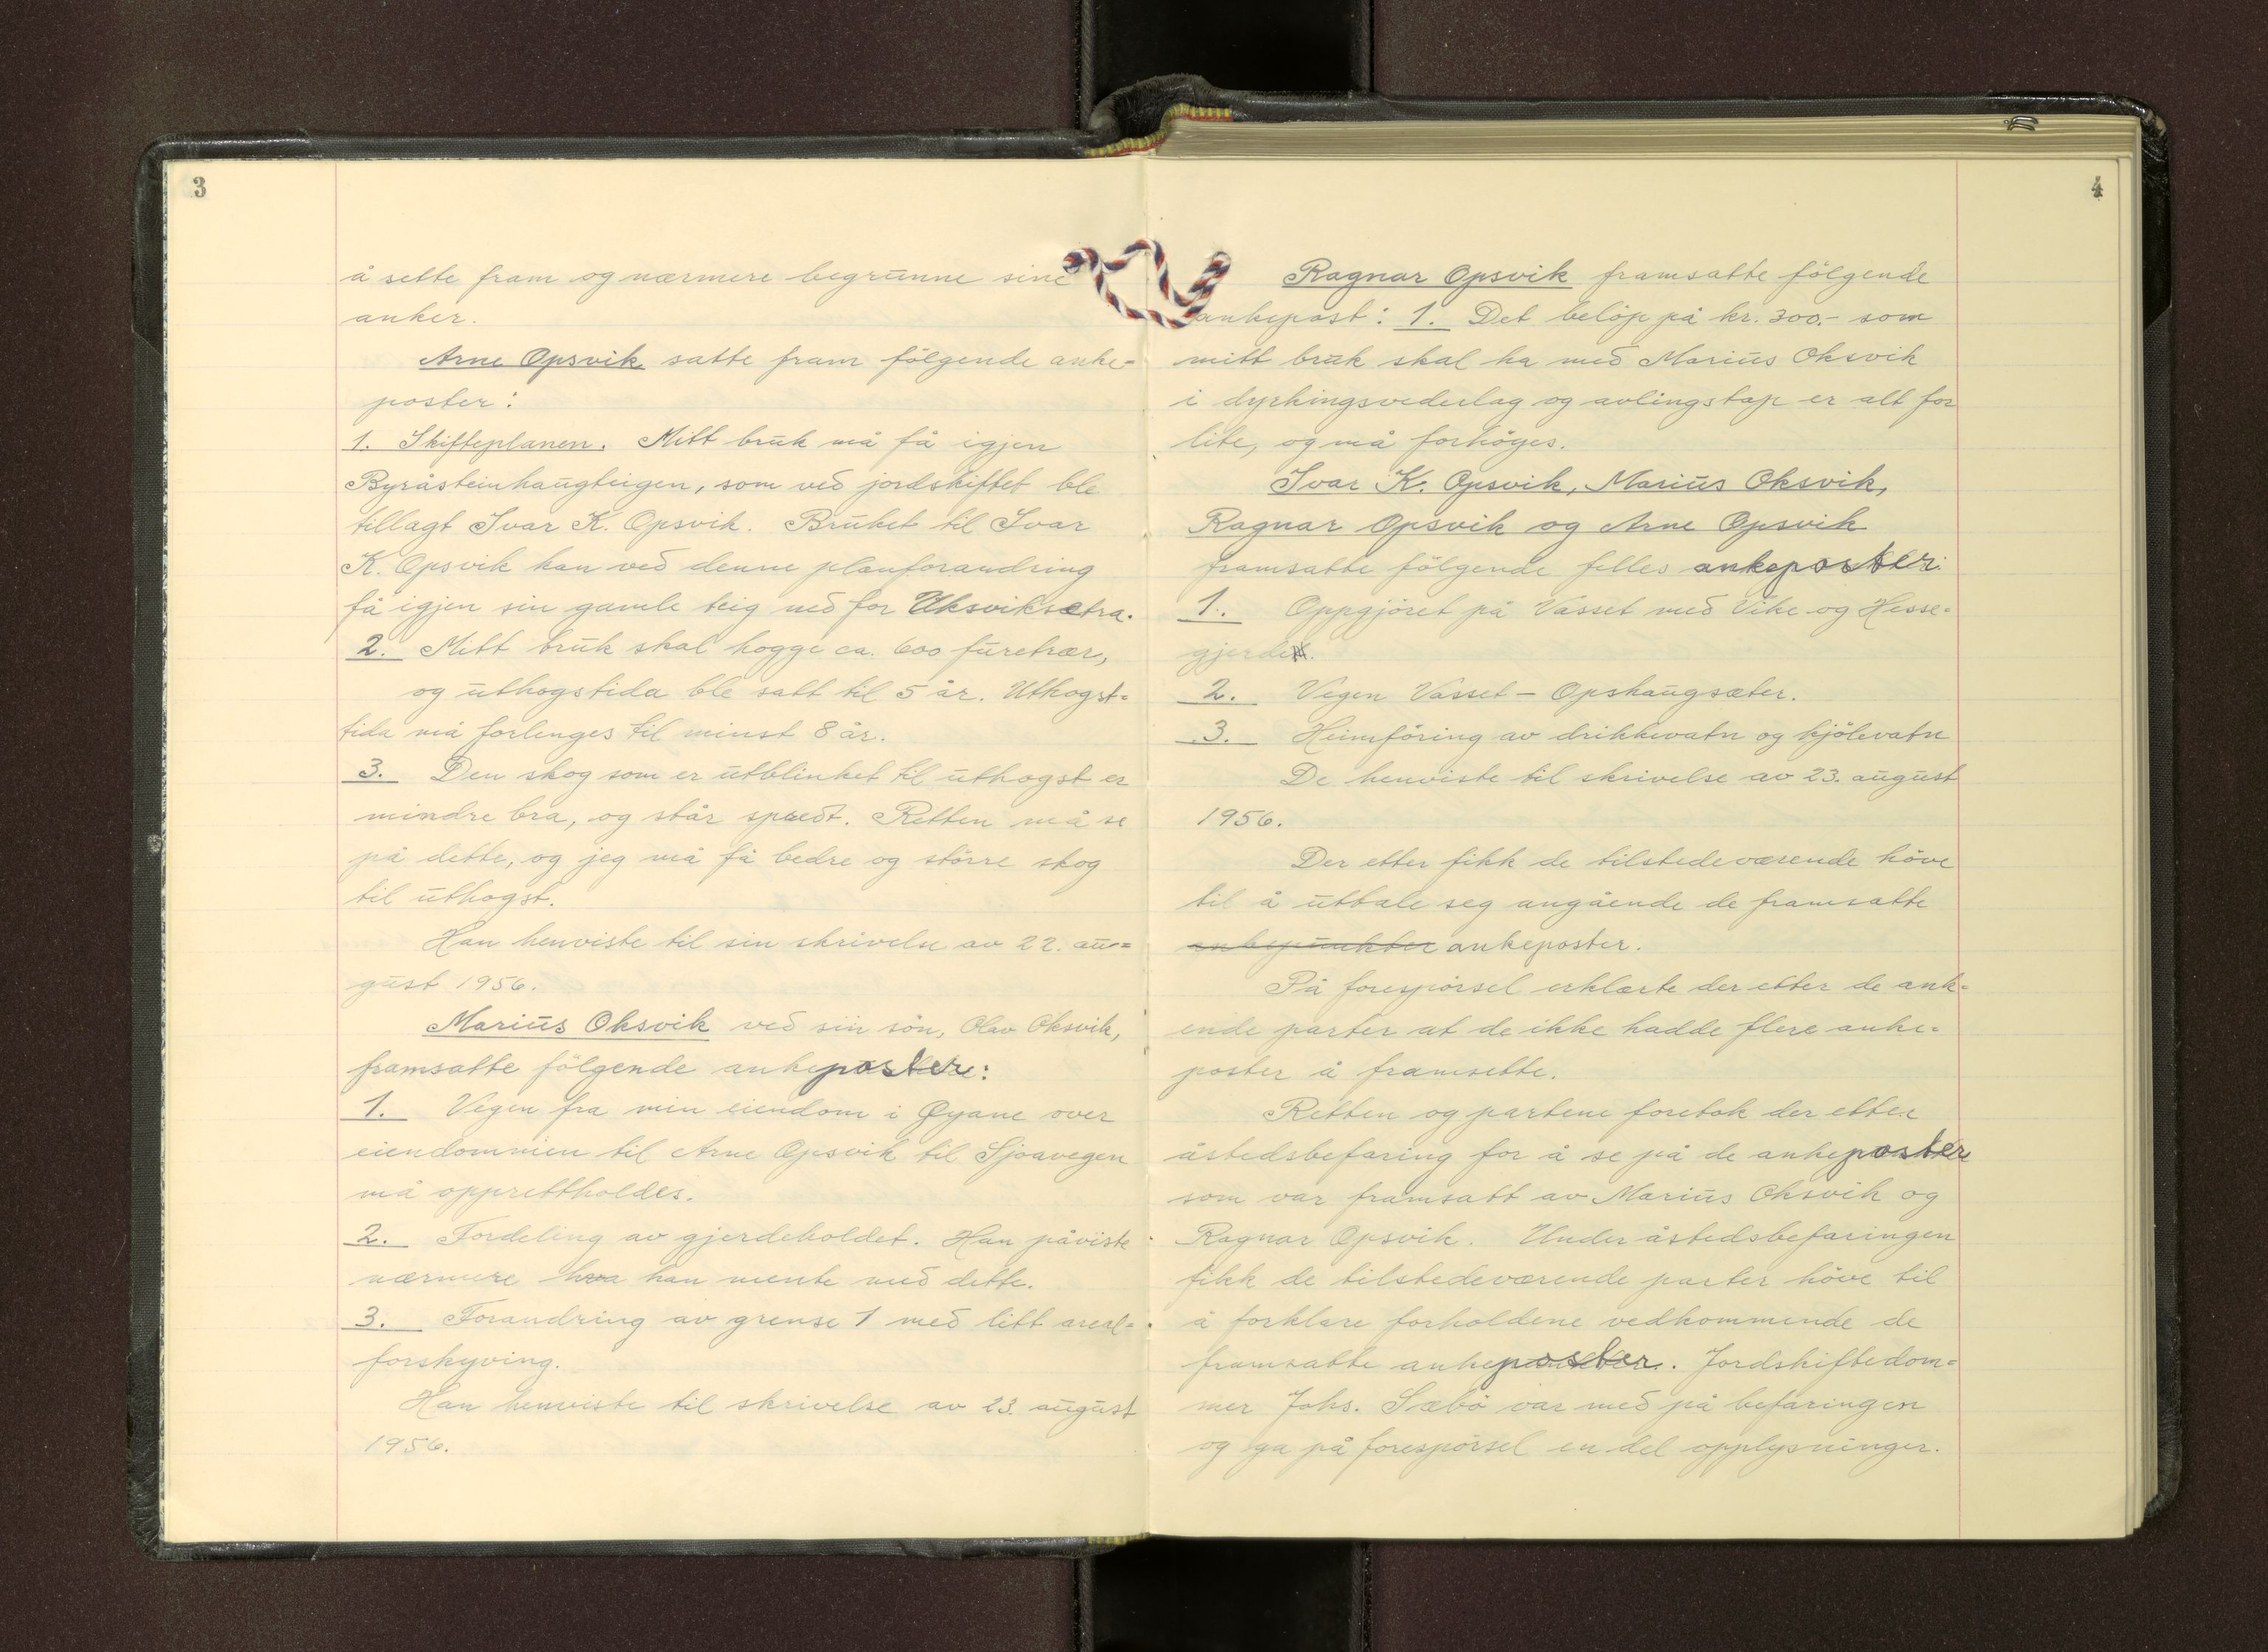 3
å sette fram og nærmere begrunne sine
anker.
Arne Opsvik satte fram følgende anke=
poster:
1. Skifteplanen. Mitt bruk må få igjen
Byråsteinhaugteigen, som ved jordskiftet ble
tillagt Ivar K. Opsvik. Bruket til Ivar
K. Opsvik kan ved denne planforandring
få igjen sin gamle teig ned for Uksviksætra.
2. Mitt bruk skal hogge ca. 600 furetrær,
og uthogstida ble satt til 5 år. Uthogst=
tida må forlenges til minst 8 år.
3. Den skog som er utblinket til uthogst er
mindre bra, og står spredt. Retten må se
på dette, og jeg må få bedre og större skog
til uthogst.
Han henviste til sin skrivelse av 22. au=
gust 1956.
Marius Oksvik ved sin sön, Olav Oksvik,
framsatte fölgende ankeposter:
1. Vegen fra min eiendom i Øyane over
eiendommen til Arne Opsvik til Sjoavegen
må opprettholdes.
2. Fordeling av gjerdeholdet. Han påviste
nærmere hva han mente med dette.
3. Forandring av grense 1 med litt areal=
forskyving.
Han henviste til skrivelse av 23. august
1956.
4
Ragnar Opsvik framsatte fölgende
ankepost: 1. Det belöp på kr. 300.- som
mitt bruk skal ha med Marius Oksvik
i dyrkingsvederlag og avlingstap er alt for
lite, og må forhöges.
Ivar K. Opsvik, Marius Oksvik,
Ragnar Opsvik og Arne Opsvik
framsatte fölgende felles ankeposter:
1. Oppgjöret på Vasset med Vike og Hesse=
gjerdet.
2. Vegen Vasset - Opshaugsæter.
3. Heimföring av drikkevatn og kjölevatn
De henviste til skrivelse av 23. august
1956.
Der etter fikk de tilstedeværende höve
til å uttale seg angående de framsatte
ankepunkter ankeposter.
På forespörsel erklærte der etter de ank=
ende parter at de ikke hadde flere anke=
poster å framsette.
Retten og partene foretok der etter
åstedsbefaring for å se på de ankeposter
som var framsatt av Marius Oksvik og
Ragnar Opsvik. Under åstedsbefaringen
fikk de tilstedeværende parter höve til
å forklare forholdene vedkommende de
framsatte ankeposter. Jordskiftedom=
mer Johs. Sæbö var med på befaringen
og ga på forespörsel en del opplysninger.